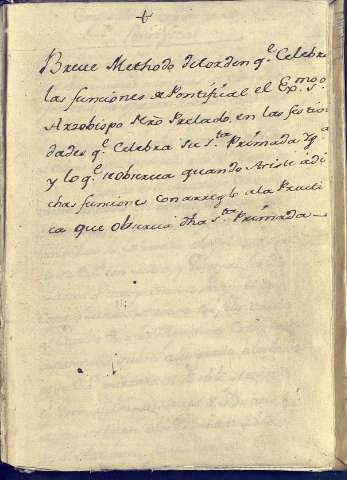 Breve Methodo del orden q.e Celebra
las funciones de Pontifical el Ex.mo S.or
Arzobispo Nrō Prelado, en las festivi
dades q.e Celebra su S.ta Primada Yg.a
y lo q.e se observa quando Asiste á di
chas funciones con arreglo a la Practi
ca que observa dha S.ta Primada